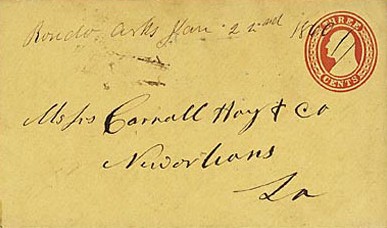 Rondo Arks Jan 22nd 1860
THREE
CENTS
Messrs Carnall Hoy & Co
New orleans
La